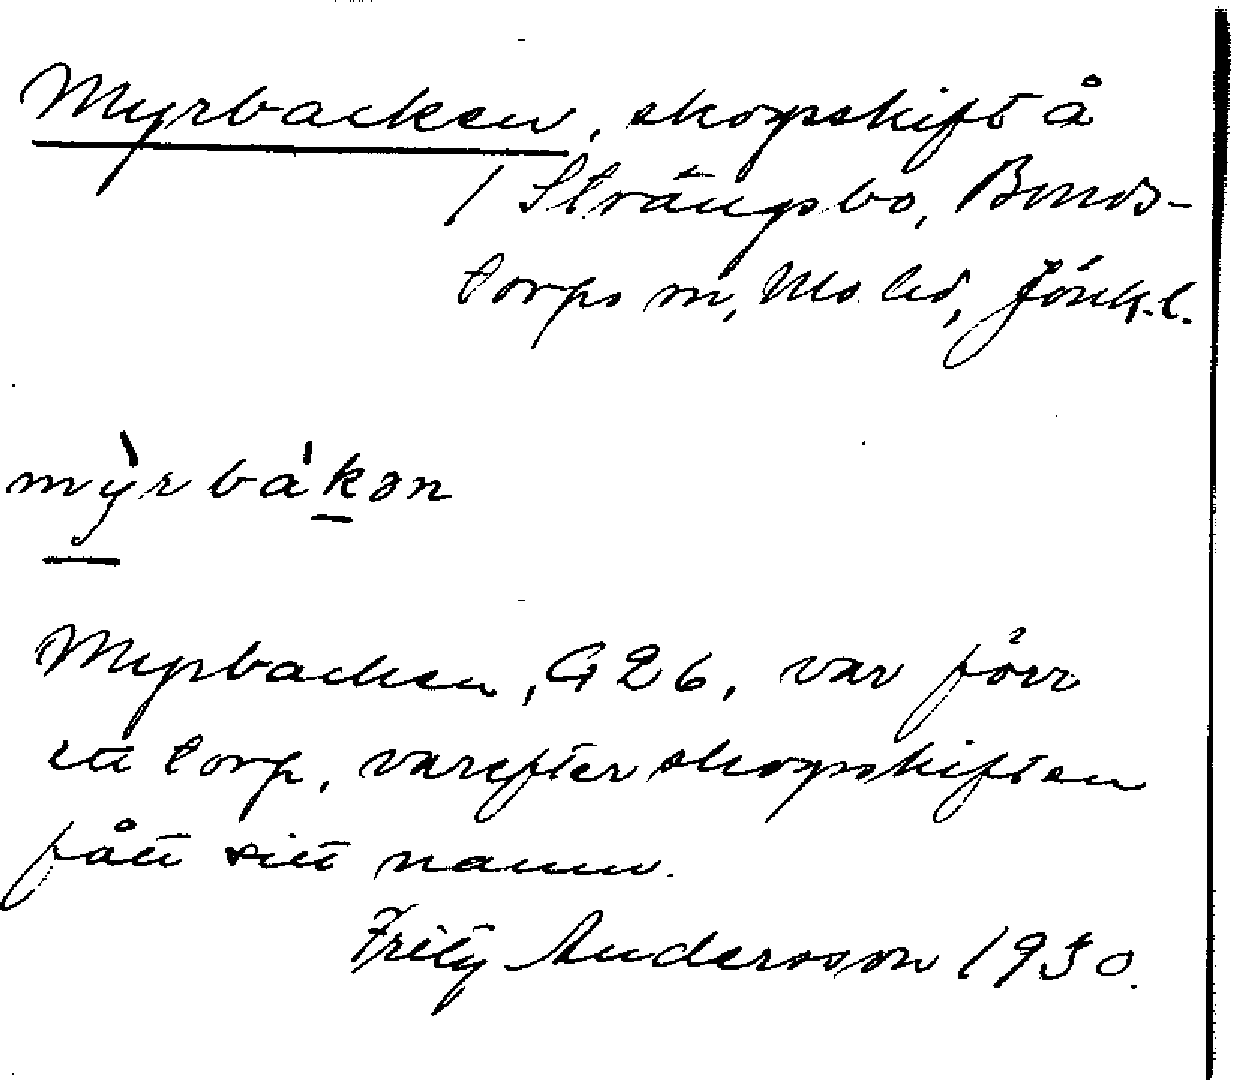 Myrbacken, skogsskift å
1 Strängsbo, Bonds-
torps sn, Mo hd, Jönk.l.
mỳrbákən
Myrbacken, G26, var förr
ett torp, varefter skogsskiften
fått sitt namn.
Fritz Andersson 1930.